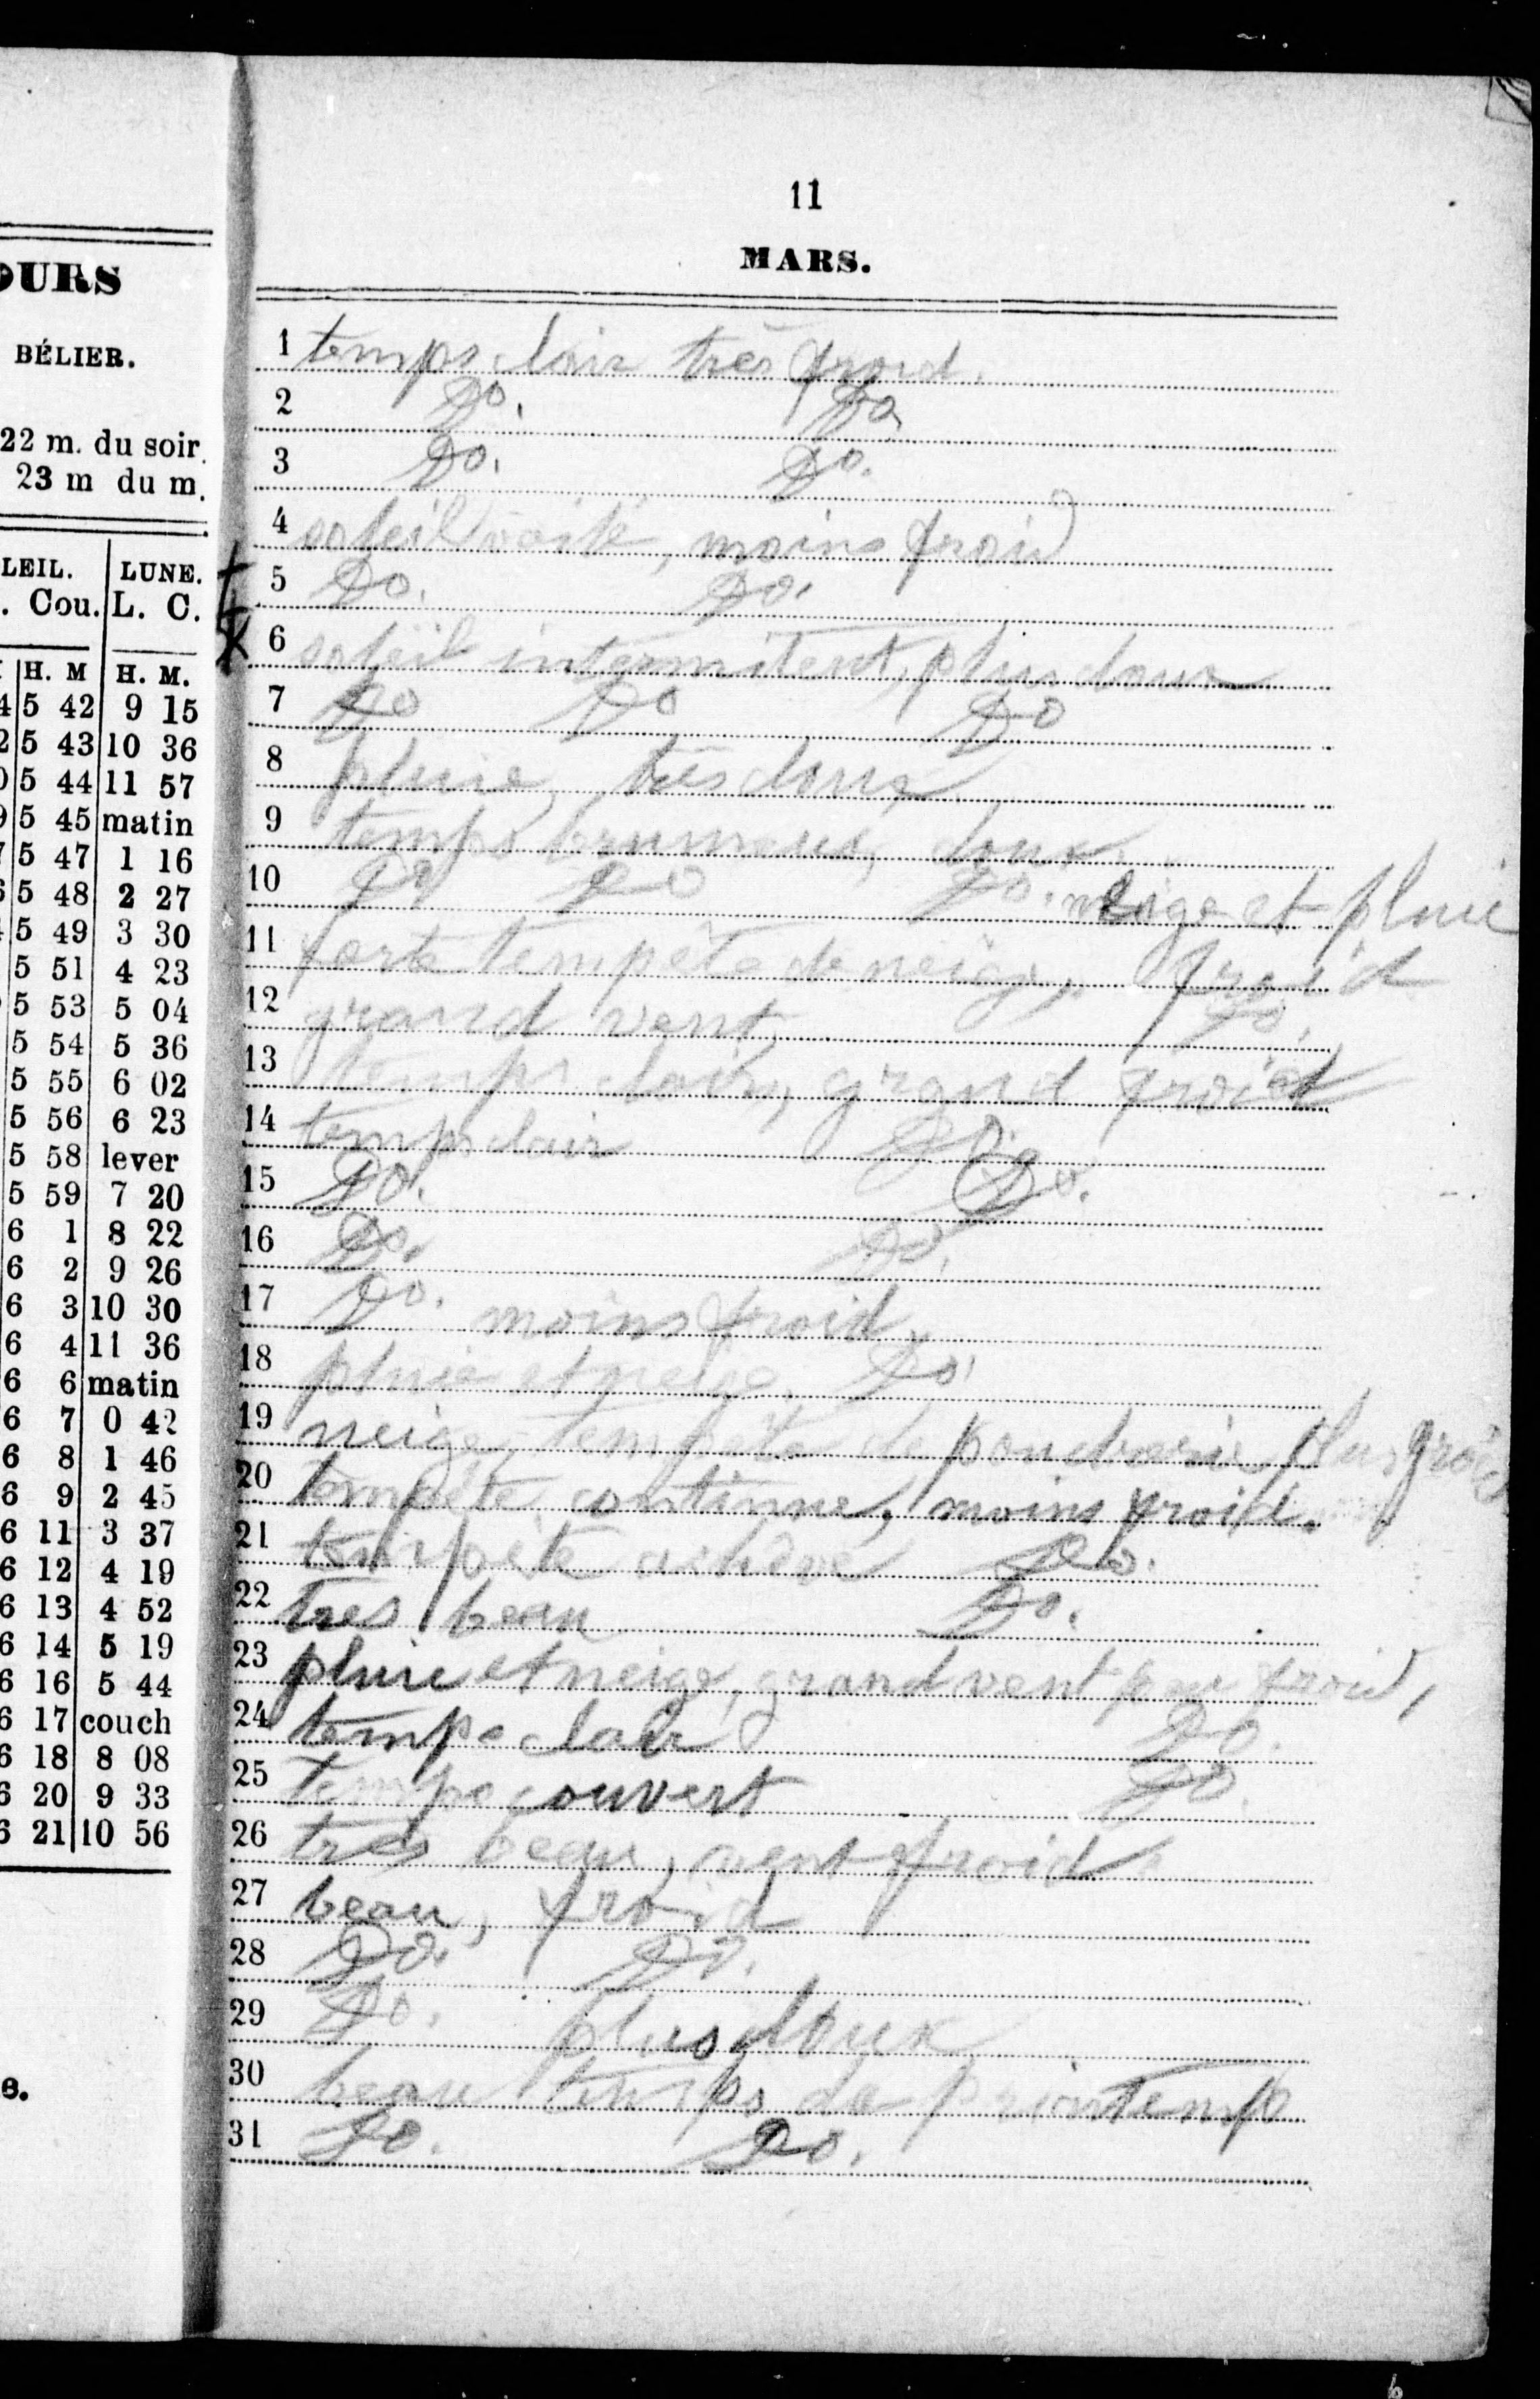 OURS
BÉLIER.
22 m. du soir.
23 m du m.
LEIL. LUNE.
. Cou. L. C.
H. M H. M.
4 5 42 9 15
2 5 43 10 36
0 5 44 11 57
9 5 45 matin
7 5 47 1 16
6 5 48 2 27
5 49 3 30
5 51 4 23
5 53 5 04
5 54 5 36
5 55 6 02
5 56 6 23
5 58 lever
5 59 7 20
6 1 8 22
6 2 9 26
6 3 10 30
6 4 11 36
6 6 matin
6 7 0 42
6 8 1 46
6 9 2 45
6 11 3 37
6 12 4 19
6 13 4 52
6 14 5 19
6 16 5 44
6 17 couch
6 18 8 08
6 20 9 33
6 21 10 56
e.
11
MARS.
1 temps clair très froid.
2 Do. Do.
3 Do. Do.
4 soleil voilé, moins froid
5 Do. Do.
6 soleil intermitent, plus doux
7 Do Do Do
8 pluie, très doux
9 temps brumeux, doux.
10 Do Do Do. neige et pluie
11 forte tempête de neige, froid
12 grand vent, Do.
13 temps clair, grand froid
14 temps clair Do.
15 Do. Do.
16 Do. Do.
17 Do. moins froid,
18 pluie et neige, Do.
19 neige, tempête de poudrerie, plus froid
20 tempête continue, moins froid.
21 tempête achève Do.
22 très beau Do.
23 pluie et neige, grand vent peu froid,
24 temps clair Do.
25 temps couvert Do.
26 très beau, vent froid
27 beau, froid
28 Do. Do.
29 Do. plus doux
30 beau temps de printemp
31 Do. Do.